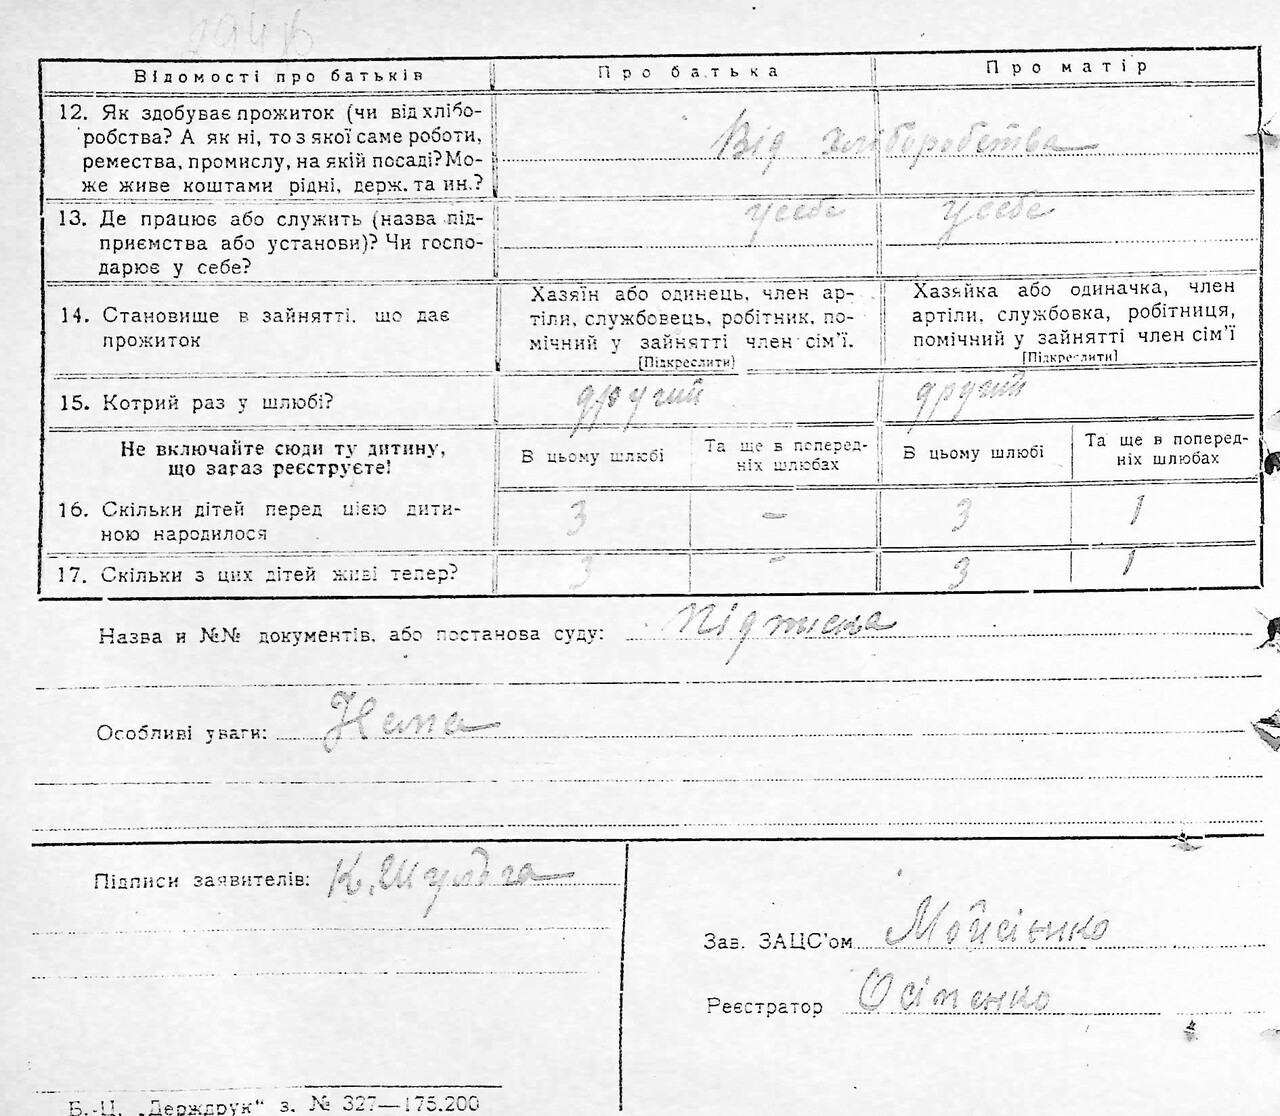 Відомості про батьків
Про батька
Про матір
12. Як здобуває прожиток (чи від хлібо-
робства? А як ні, то з якої саме роботи,
ремества, промислу, на якій посаді? Мо-
же живе коштами рідні, держ. та ин.?
Від хліборобства
13. Де працює або служить (назва під-
приємства або установи)? Чи госпо-
дарює у себе?
у себе
у себе
14. Становище в зайнятті, що дає
прожиток
Хазяїн або одинець, член ар-
тіли, службовець, робітник, по-
мічний у зайнятті член сім'ї.
[Підкреслити]
Хазяйка або одиначка, член
артіли, службовка, робітниця,
помічний у зайнятті член сім'ї
[Підкреслити]
15. Котрий раз у шлюбі?
другий
другий
Не включайте сюди ту дитину,
що зараз реєструєте!
В цьому шлюбі
Та ще в поперед-
ніх шлюбах
В цьому шлюбі
Та ще в поперед-
ніх шлюбах
16. Скільки дітей перед цією дити-
ною народилося
3
–
3
1
17. Скільки з цих дітей живі тепер?
3
-
3
1
Назва и №№ документів, або постанова суду: Підписка
Особливі уваги: Нема
Підписи заявителів: К. Шульга
Зав. ЗАЦС'ом Мойсієнко
Реєстратор Осіпенко
Б.-Ц. „Держдрук“ з. № 327—175.200